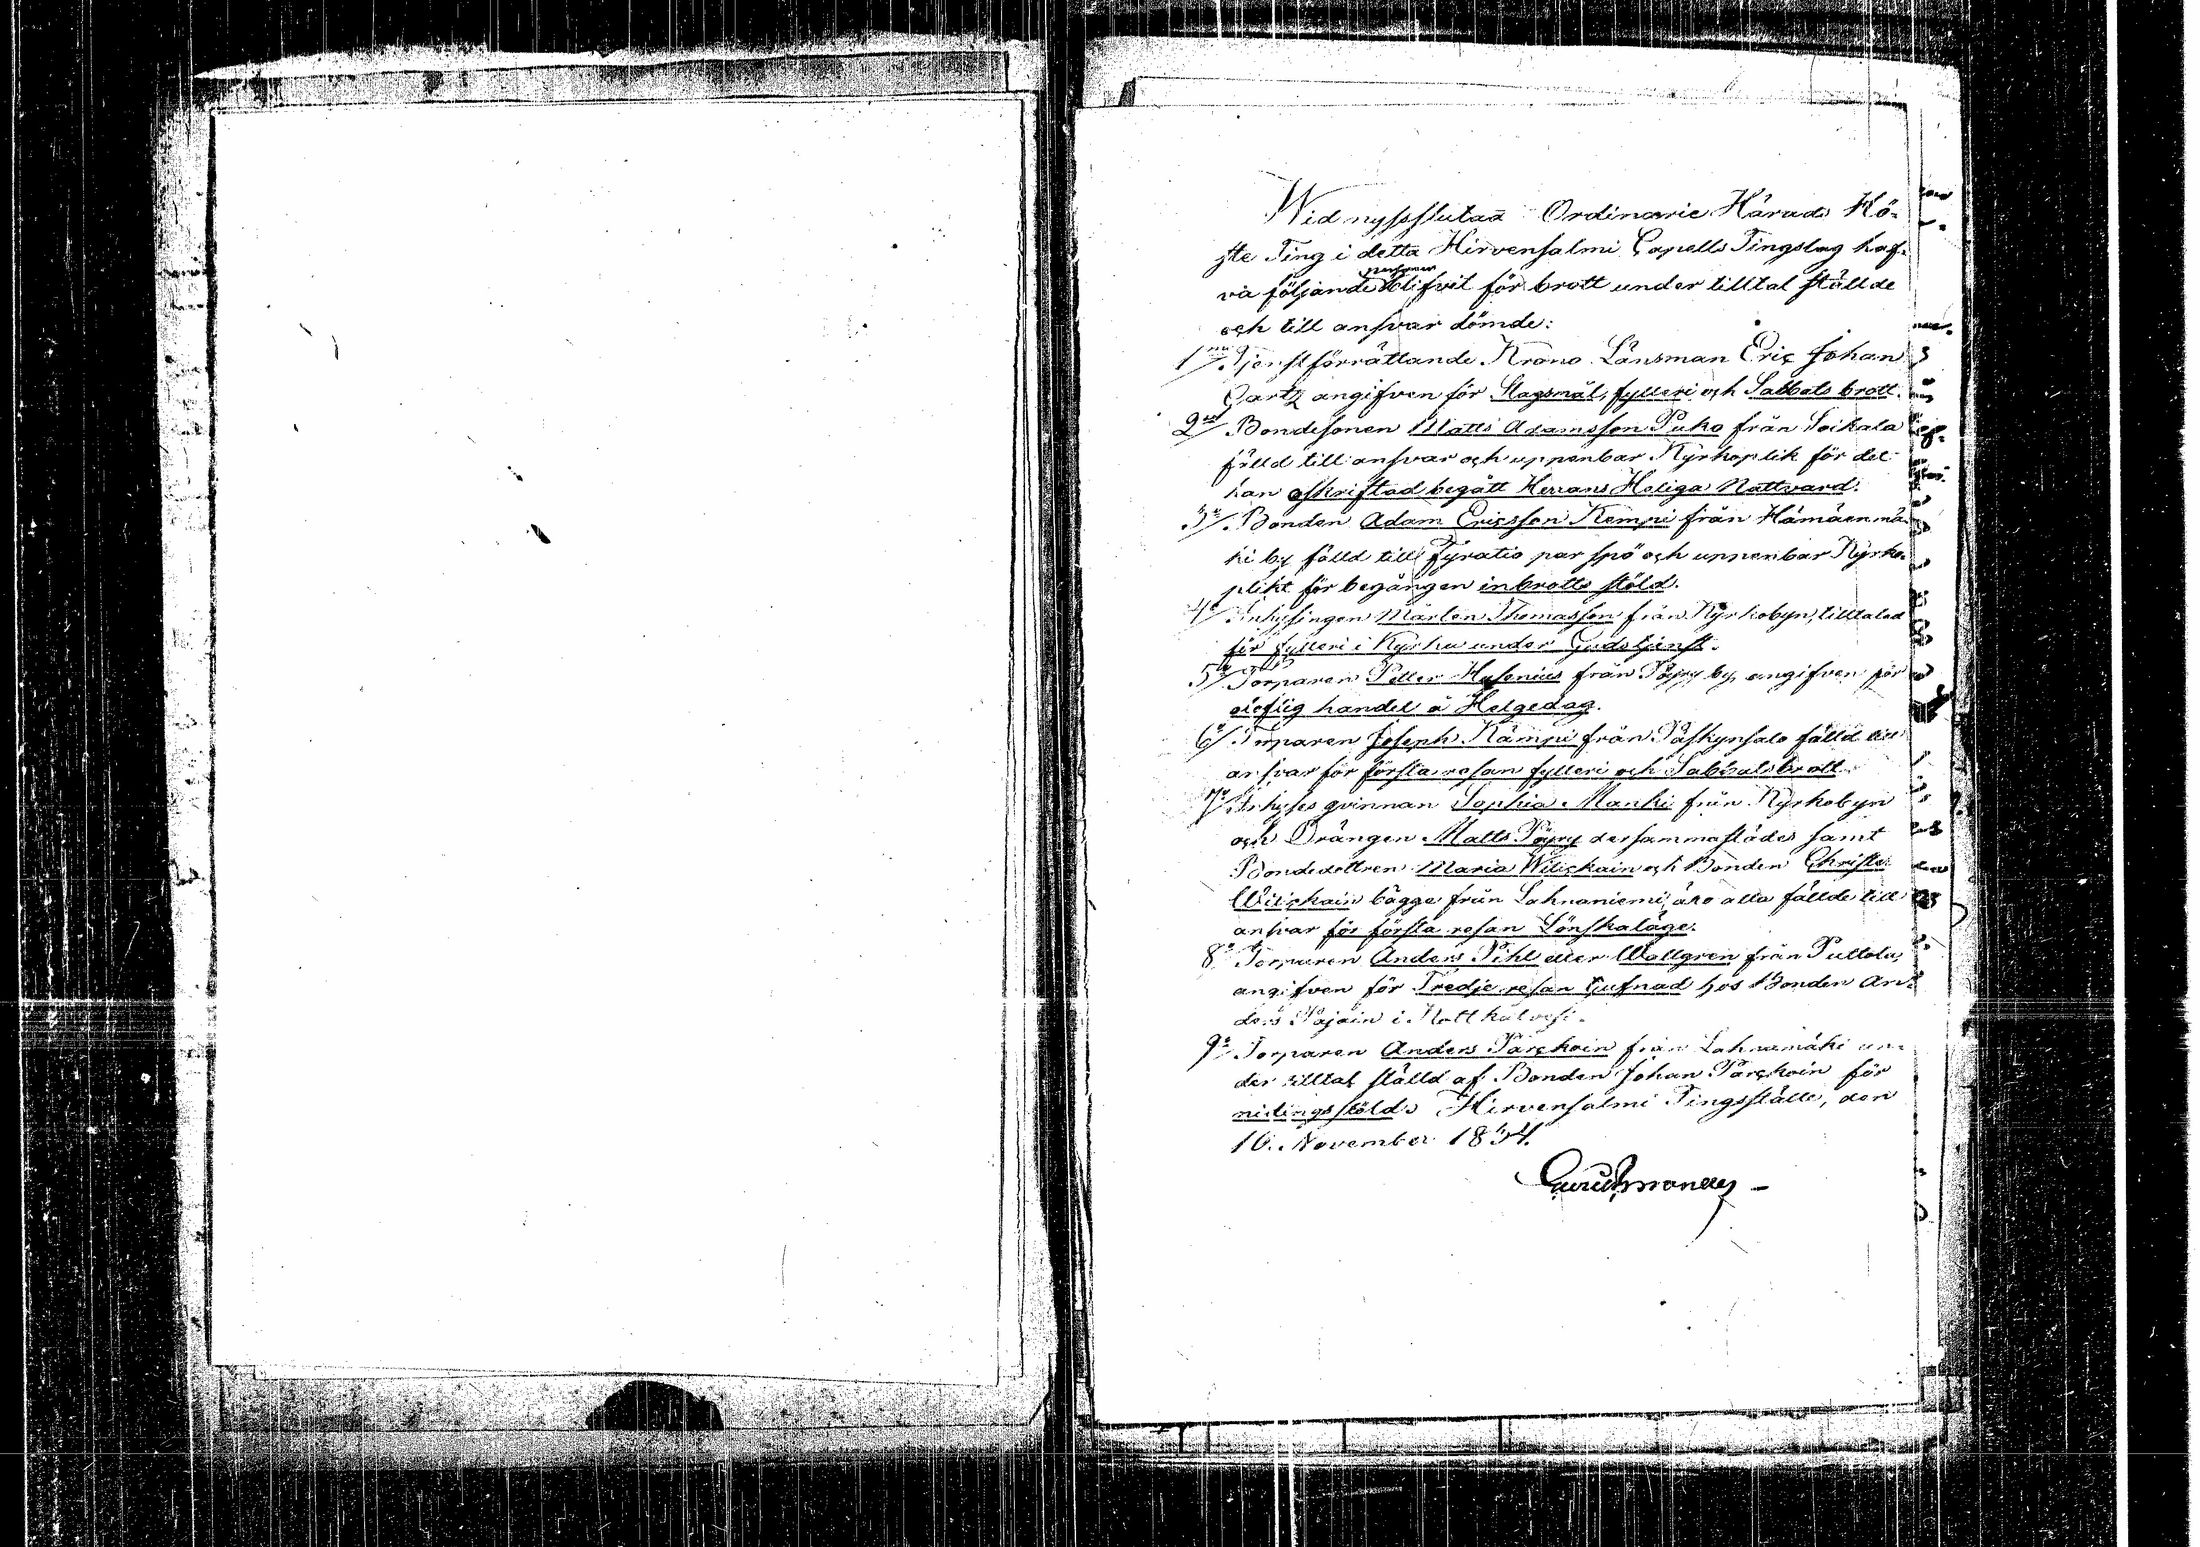 Wid nyssslutad Ordinarie Härads Hö-
ste Ting i detta Hirvensalmi Capells Tingslag haf-
va följande personer blifvit för brott under tilltal stälde
och till ansvar dömde:
1mo Tjenstförrättande Krono Länsman Eric Johan
Gartz angifven för Slagsmål, fylleri och Sabbats brott.
2do Bondesonen Matts Adamsson Puko från Soikala
fälld till ansvar och uppenbar Kyrkoplikt för det
han oskriftad begått Herrans Heliga Nattvard.
3o Bonden Adam Ericsson Kempi från Hämäenmä-
ki by fälld till Fyratio par spö och uppenbar Kyrko-
plikt för begången inbrotts stöld.
4o Inhysingen Mårten Thomasson från Kyrkobyn, tilltalad
för fylleri i Kyrka under Gudstjenst.
5o Torparen Petter Husenius från Pöyry by, angifven för
oloflig handel å Helgedag.
6o Torparen Joseph Kämpi från Päskynsalo fälld till
ansvar för första resan fylleri och Sabbatsbrott.
7o Inhyses qvinnan Sophia Manki från Kyrkobyn
och Drängen Matts Pöyry dersammastädes samt
Bondedottren Maria Wilickain och Bonden Christer
Wilickain bägge från Lahnaniemi, äro alla fällde till
ansvar för första resan Lönskaläge.
8o Torparen Anders Pihl eller Wallgren från Puttola,
angifven för Tredje resan tjufnad hos Bonden An-
ders Pajain i Kotthalvesi.
9o Torparen Anders Parckoin från Lahnamäki un-
der tilltal ställd af Bonden Johan Parckoin för
nidings stöld. Hirvensalmi Tingsställe, den
16. November 1834.